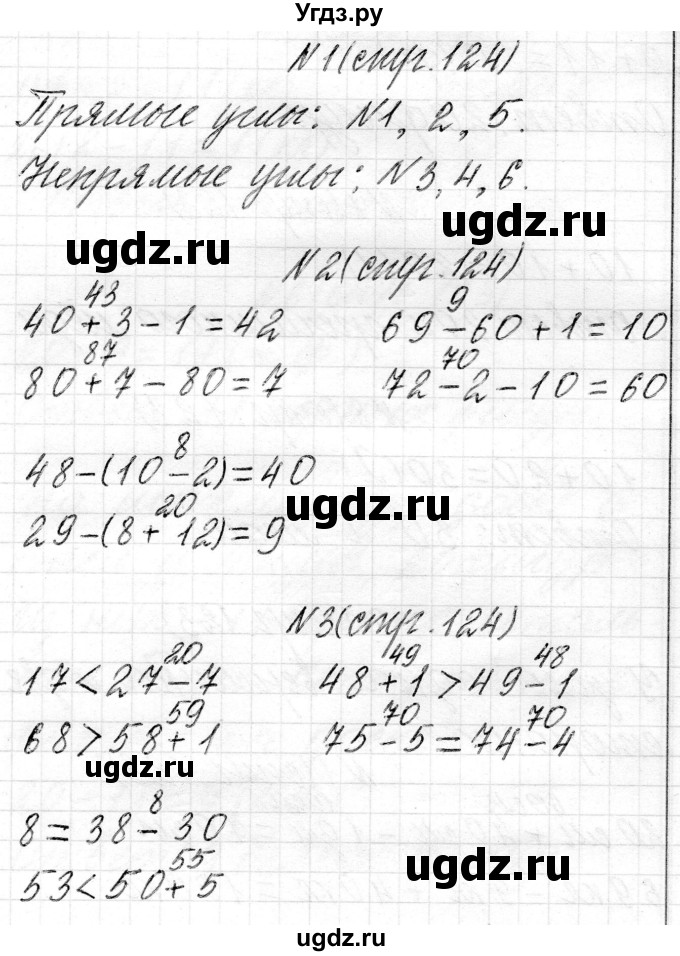 Угдз.ру
N1(стр.124)
Прямые углы: N1, 2, 5.
Непрямые углы: N3, 4, 6.
ugdz.ru
ugdz.ru
N2(стр.124)
43
9
40+3-1=42
69-60+1=10
87
70
80+7-80=7
72-2-10=60
8
48-(10-2)=40
20
ugdz.ru
29-(8+12)=9
N3(стр.124)
20
49
48
17<27-7
48+1>49-1
59
70
70
68>58+1
75-5=74-4
ugdz.ru
8
8=38-30
55
ugdz.ru
53<50+5
ugdz.ru